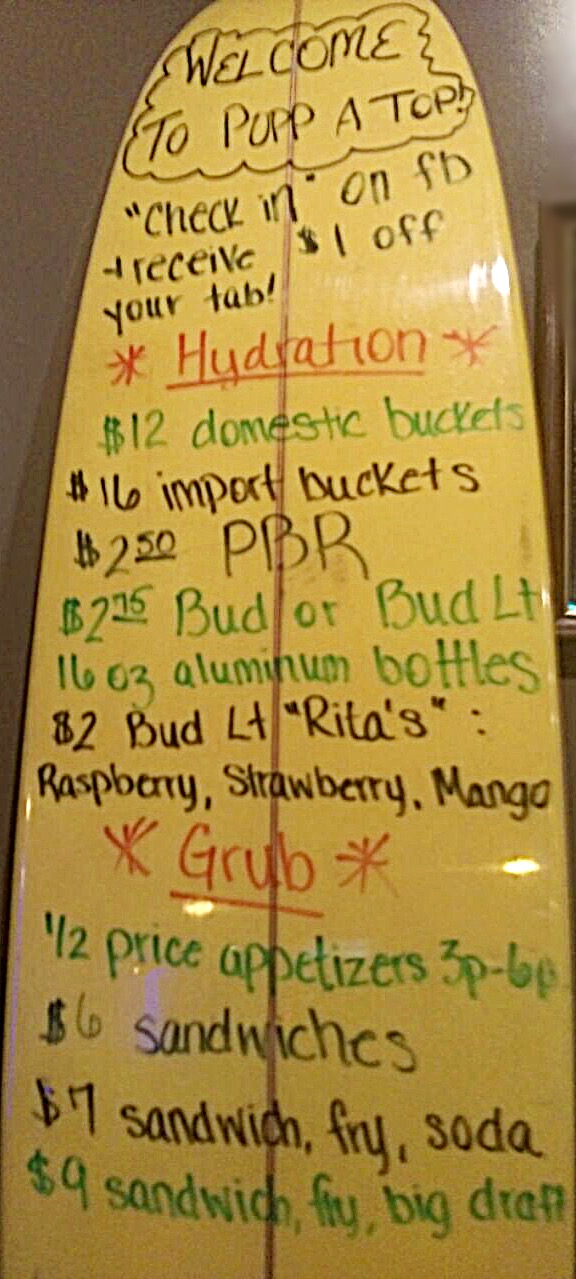 WELCOME
TO PUPP A TOP!
"Check in" on fb
+ receive $1 off
your tab!
* Hydration *
$12 domestic buckets
$16 import buckets
$2.50 PBR
$2.75 Bud or Bud Lt
16 oz aluminum bottles
$2 Bud Lt "Rita's" :
Raspberry, Strawberry, Mango
* Grub *
1/2 price appetizers 3p-6p
$6 sandwiches
$7 sandwich, fry, soda
$9 sandwich, fry, big draft